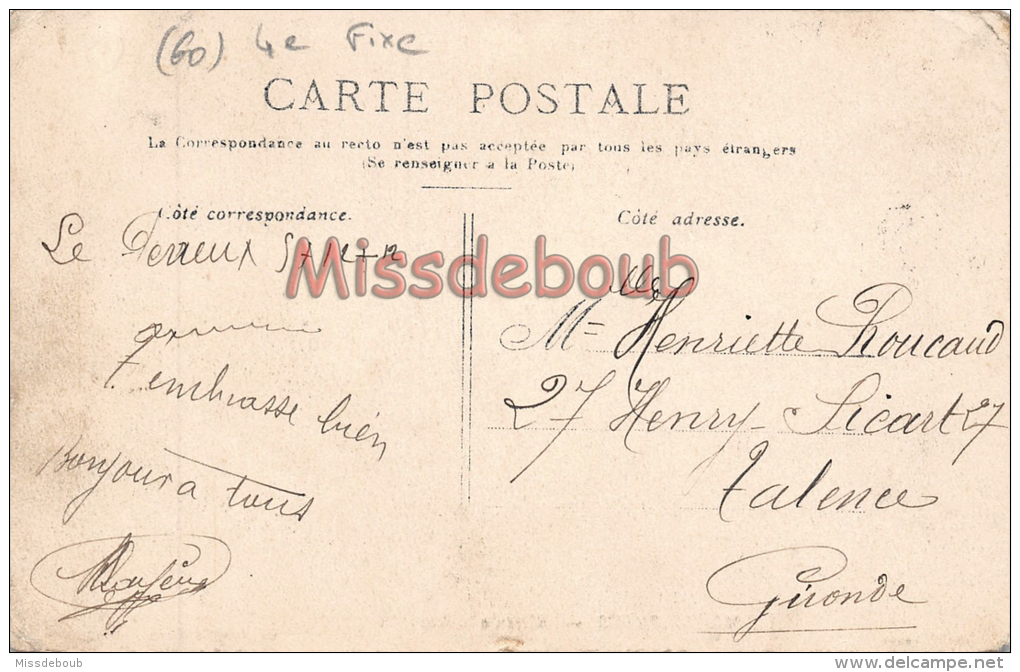 (60) 4e Fixe
CARTE POSTALE
La Correspondance au recto n'est pas acceptée par tous les pays étrangers
(Se renseigner a la Poste)
Côté correspondance.
Le Perreux 5-12-12
T'embrasse bien
Bonjour a tous
Côté adresse.
Mlle Henriette Roucaud
27 Henry-Sicart 27
Talence
Gironde
Missdeboub
Missdeboub
www.delcampe.net